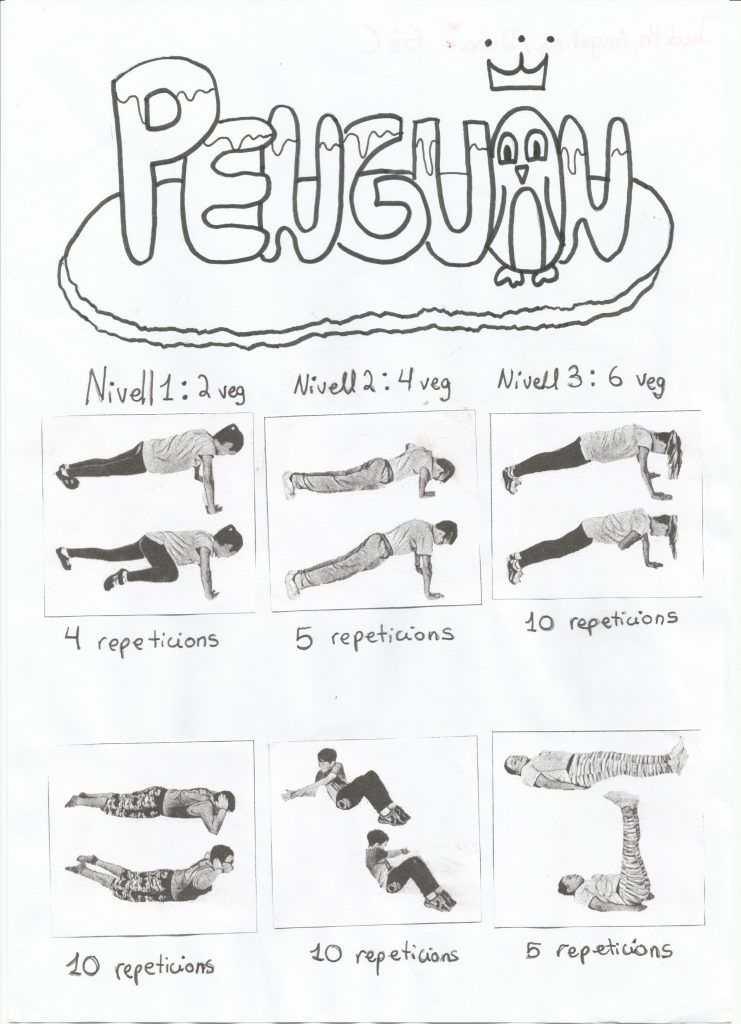 Judith, Angelina, Dara 6è C
PENGUIN
Nivell 1: 2 veg Nivell 2: 4 veg Nivell 3: 6 veg
4 repeticions 5 repeticions 10 repeticions
10 repeticions 10 repeticions 5 repeticions